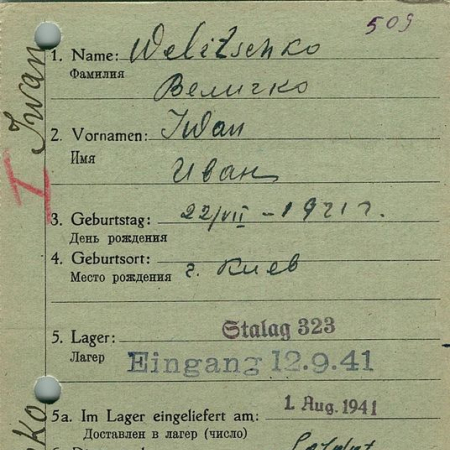 509
Iwan
1. Name: Welitschko
Фамилия
Величко
2. Vornamen: Iwan
Имя
Иван
I
3. Geburtstag: 22/VII - 1921 г.
День рождения
4. Geburtsort: г. Киев
Место рождения
5. Lager: Stalag 323
Лагер Eingang 12.9.41
5a. Im Lager eingeliefert am: 1. Aug. 1941
Доставлен в лагер (число)